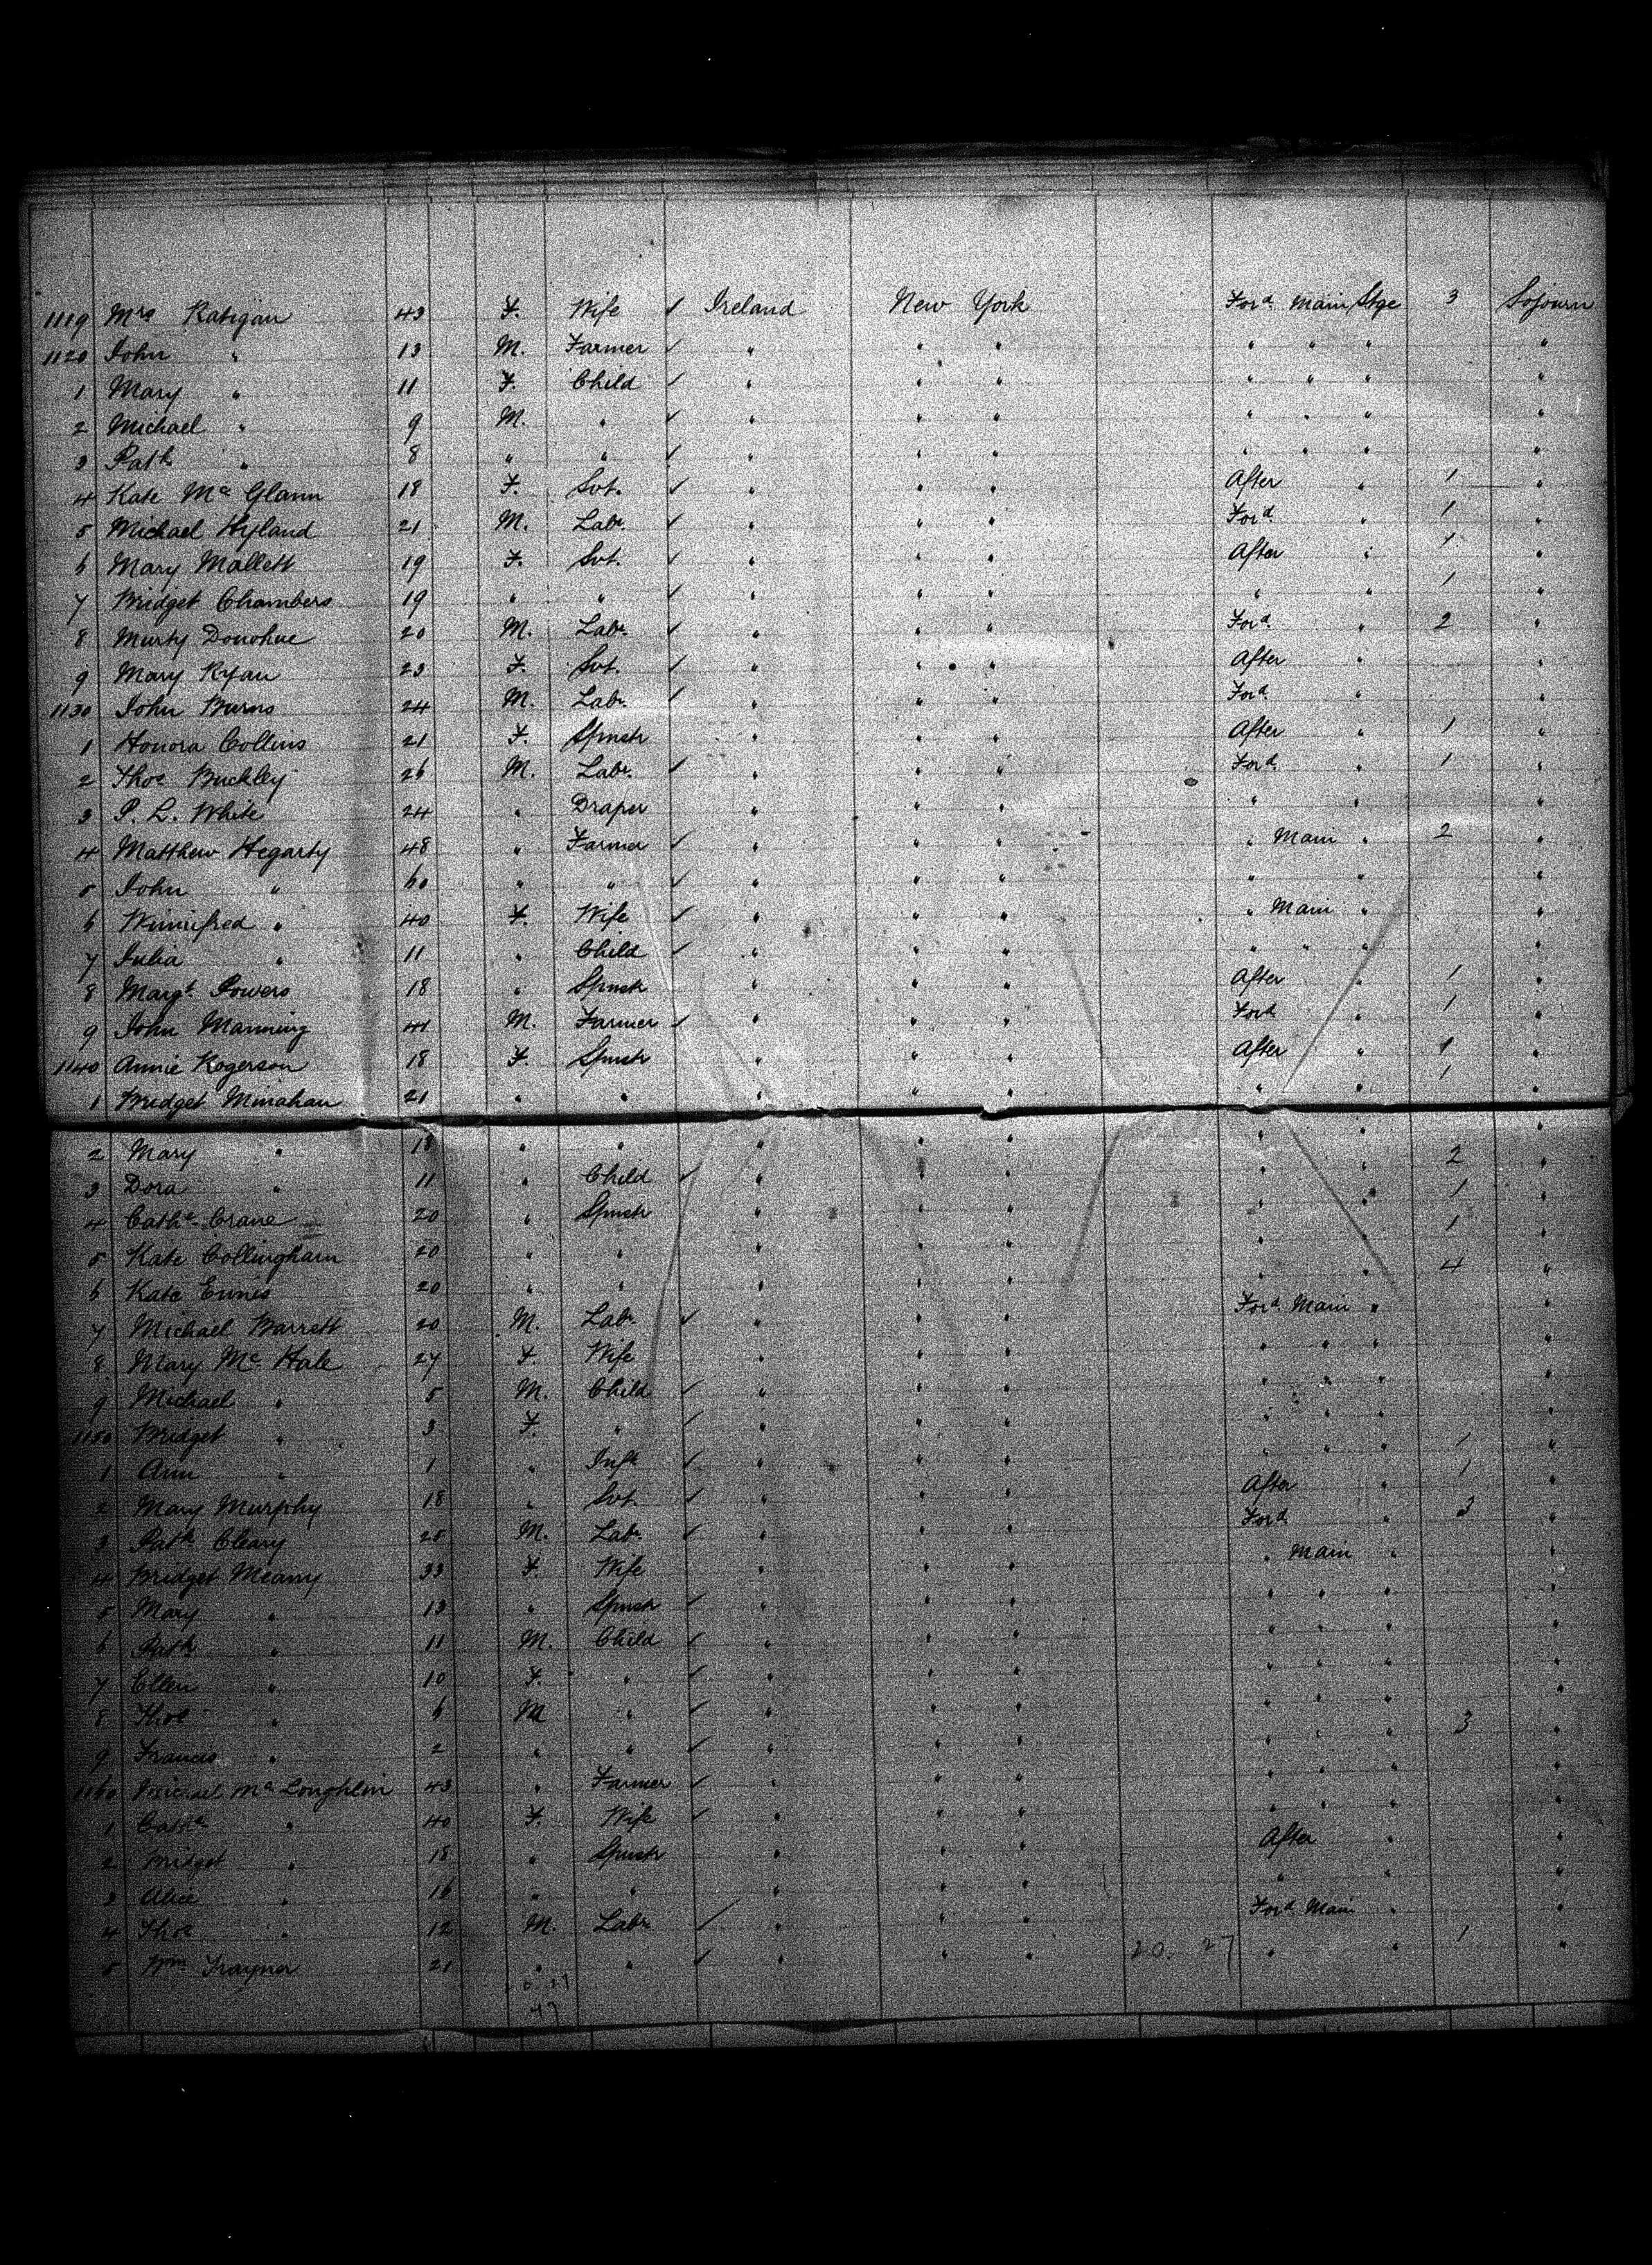 1119 Mrs Ratigan 43 F. Wife ✓ Ireland New York Ford. Main Stge 3 Sojourn
1120 John " 13 M. Farmer ✓ " " " " " " "
1 Mary " 11 F. Child ✓ " " " " " " "
2 Michael " 9 M. " ✓ " " " " " " "
3 Patk " 8 " " ✓ " " " " " " "
4 Kate Mc Glann 18 F. Svt. ✓ " " " After " 1 "
5 Michael Hyland 21 M. Labr. ✓ " " " Ford. " 1 "
6 Mary Mallett 19 F. Svt. ✓ " " " After " 1 "
7 Bridget Chambers 19 " " ✓ " " " " " 1 "
8 Murty Donohue 20 M. Labr. ✓ " " " Ford. " 2 "
9 Mary Ryan 23 F. Svt. ✓ " " " After " "
1130 John Burns 24 M. Labr. ✓ " " " Ford. " "
1 Honora Collins 21 F. Spnstr " " " After " 1 "
2 Thos Buckley 26 M. Labr. ✓ " " " Ford. " 1 "
3 P. L. White 24 " Draper " " " " " "
4 Matthew Hegarty 48 " Farmer ✓ " " " " Main " 2 "
5 John " 60 " " ✓ " " " " " "
6 Winnifred " 40 F. Wife ✓ " " " " Main " "
7 Julia " 11 " Child ✓ " " " " " " "
8 Margt. Powers 18 " Spnstr " " " After " 1 "
9 John Manning 41 M. Farmer ✓ " " " Ford. " 1 "
1140 Annie Rogerson 18 F. Spnstr " " " After " 1 "
1 Bridget Minahan 21 " " " " " " " 1 "
2 Mary " 18 " " " " " " " "
3 Dora " 11 " Child ✓ " " " " " 2 "
4 Cathe. Crane 20 " Spnstr " " " " " 1 "
5 Kate Collingham 20 " " " " " " " 1 "
6 Kate Ennis 20 " " " " " " " 4 "
7 Michael Barrett 20 M. Labr. ✓ " " " Ford. Main " "
8 Mary Mc Hale 27 F. Wife " " " " " " "
9 Michael " 5 M. Child ✓ " " " " " " "
1150 Bridget " 3 F. " ✓ " " " " " " "
1 Ann " 1 " Inft ✓ " " " " " " 1 "
2 Mary Murphy 18 " Svt. ✓ " " " After " 1 "
3 Patk Cleary 25 M. Labr. ✓ " " " Ford. " 3 "
4 Bridget Meany 33 F. Wife " " " " Main " "
5 Mary " 13 " Spnstr ✓ " " " " " " "
6 Patk " 11 M. Child ✓ " " " " " " "
7 Ellen " 10 F. " ✓ " " " " " " "
8 Thos " 6 M " ✓ " " " " " " "
9 Francis " 2 " " ✓ " " " " " " 3 "
1160 Michael Mc Loughlin 43 " Farmer ✓ " " " " " " "
1 Cathe " 40 F. Wife ✓ " " " " " " "
2 Bridget " 18 " Spnstr " " " After " "
3 Alice " 16 " " " " " " " "
4 Thos " 12 M. Labr ✓ " " " Ford. Main " "
5 Wm. Traynor 21 " " ✓ " " " 20. 27 " " 1 "
47